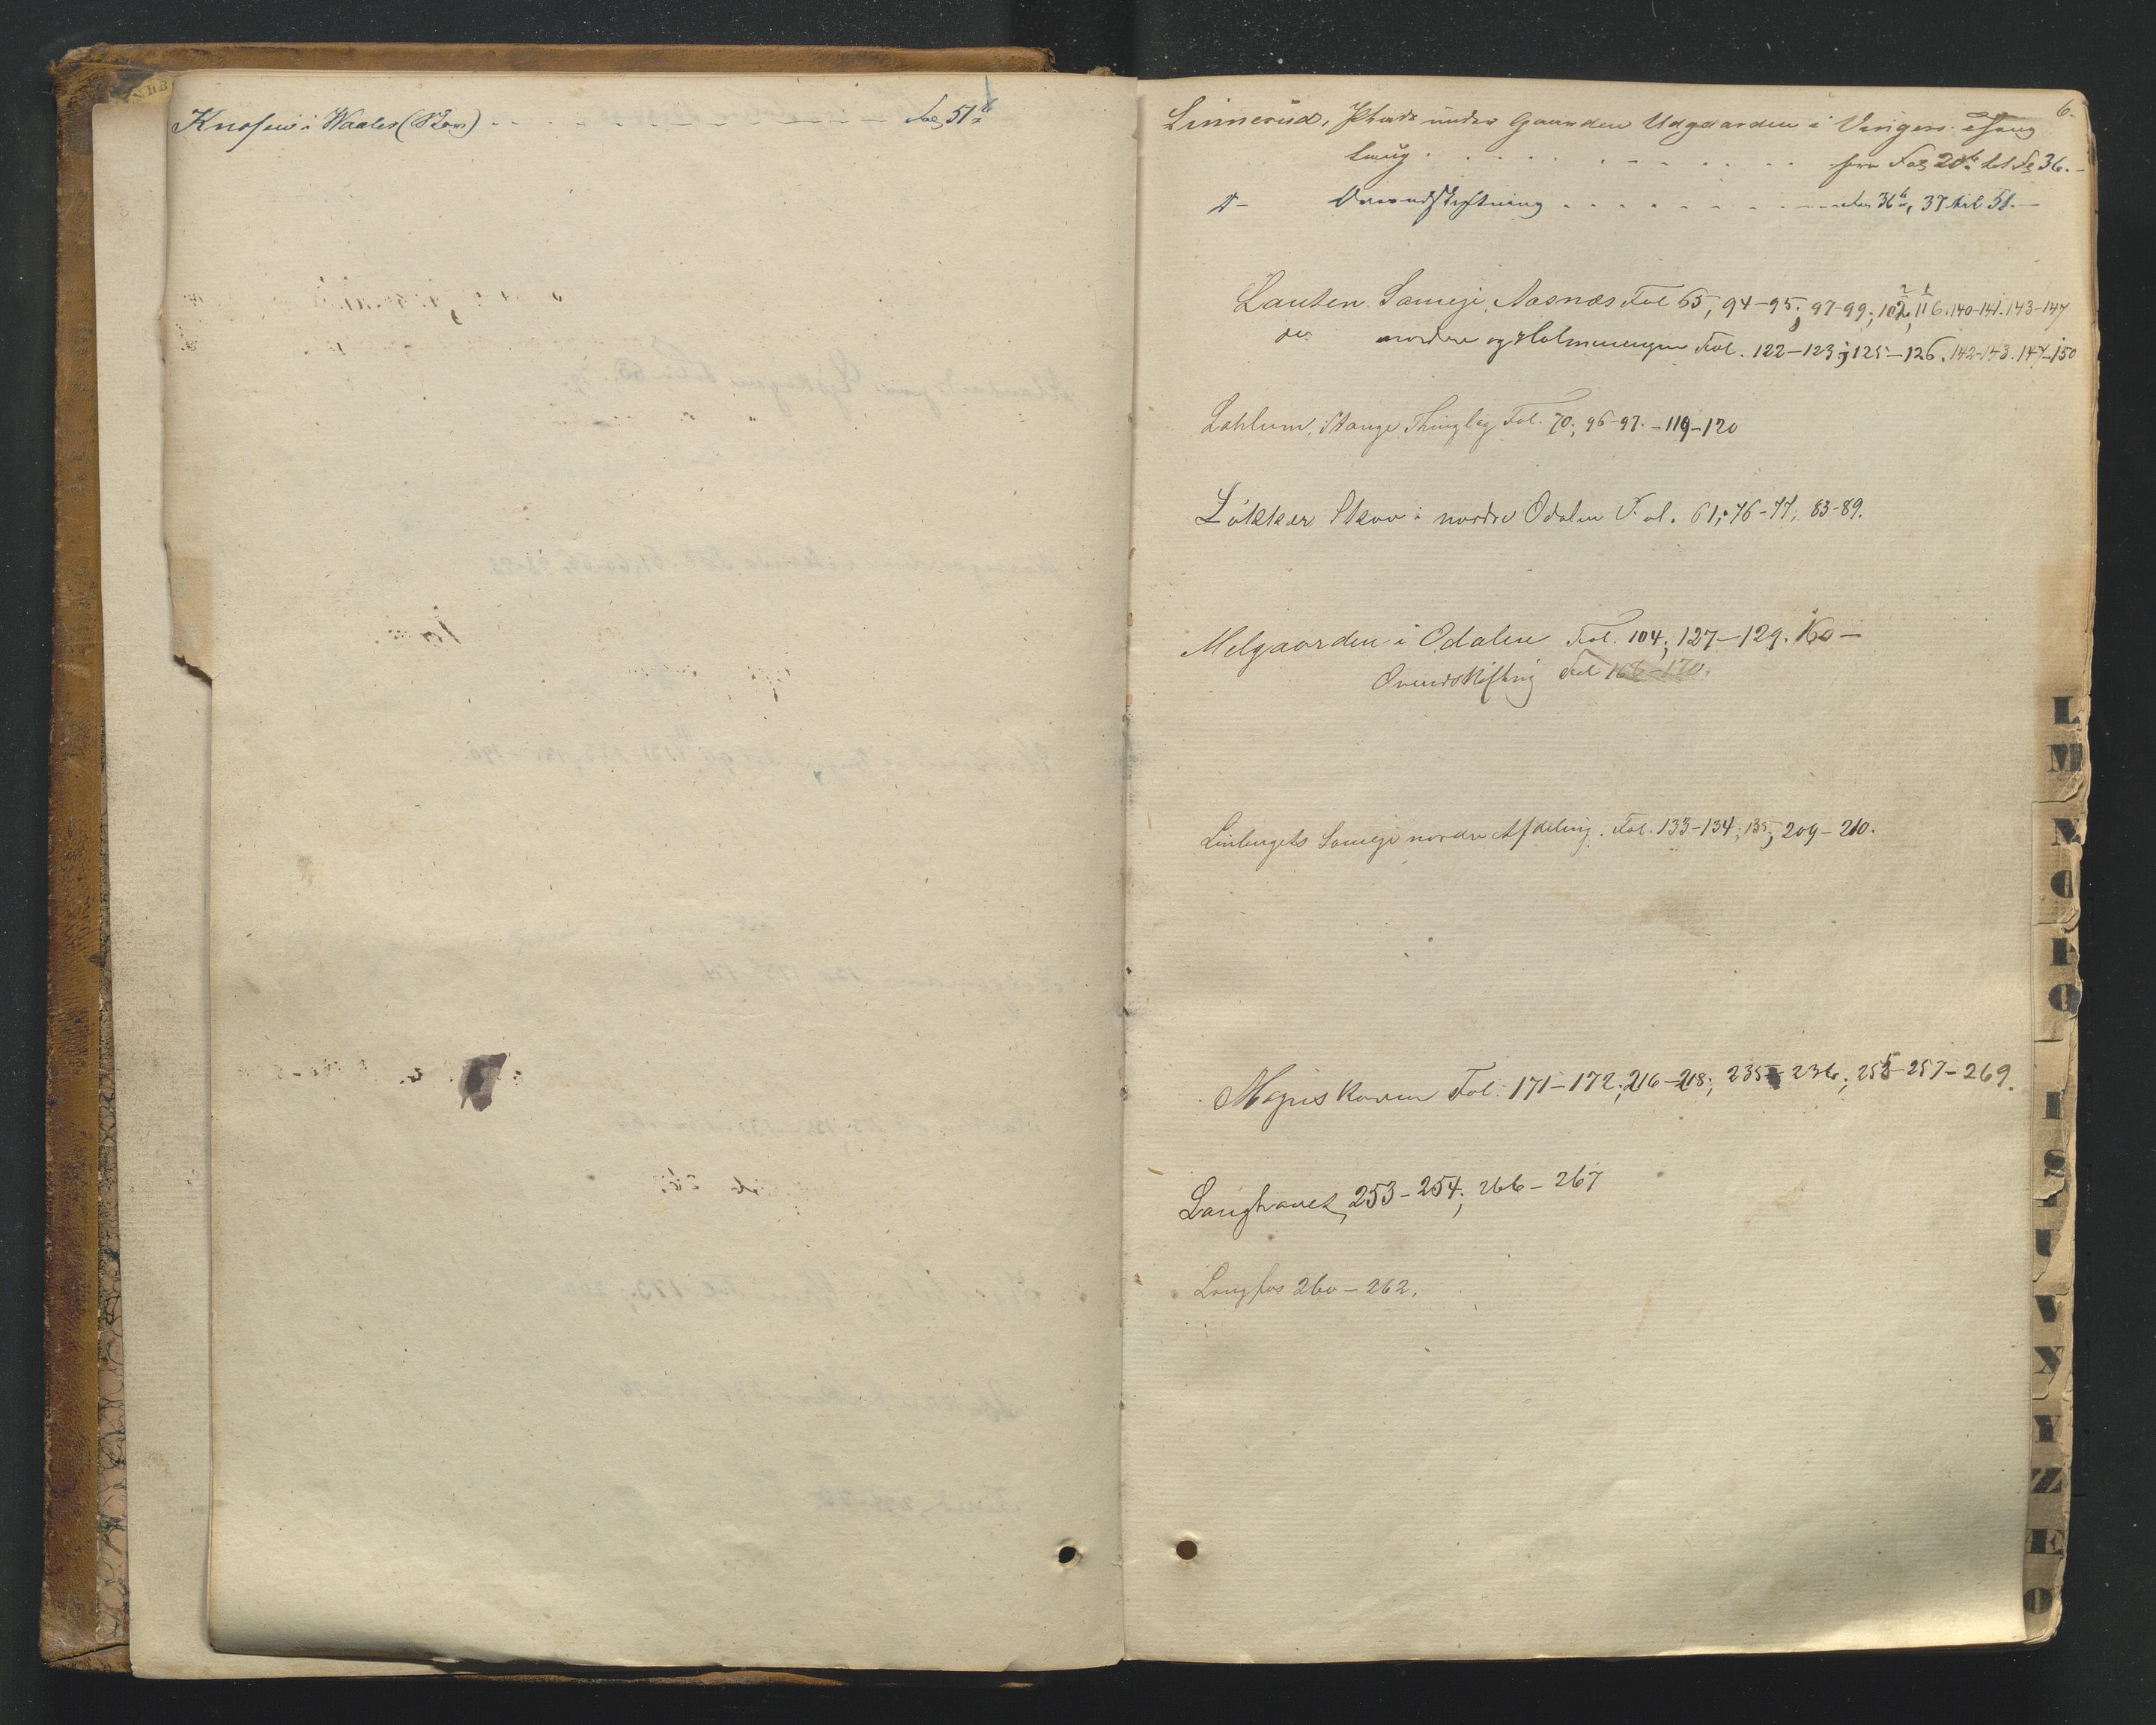 Knosen i Waaler (Skov) - - - - - - - - - Fol 51 b
6.
Linnerud, Plads under Gaarden Udgaarden i Vinger Thing
laug . . . . . . . . fra Fol 20 b til Fol 36. -
D - Ovoudskiftning - - - - - - - - 36 b, 37 til 51. -
Lauten Sameje, Aasnæs Fol 65, 94-95; 97-99; 102, 116. 140-141. 143-147
do nordre og Holmmengen Fol. 122-123; 125-126. 142-143. 147-150
Lohlum, Stange Thinglag Fol. 70; 96-97. - 119-120
Løkker Skov i nordre Odalen Fol. 61; 76-77; 83-89.
Melgaarden i Odalen Fol. 104; 127-129. 160 -
Ovuudskiftning Fol 166-170.
Linbergets Sameje nordre Afdeling. Fol. 133-134; 135; 209-210.
Magnskoven Fol. 171-172; 216-218; 235-236; 255-257-269.
Langhauet, 253-254; 266-267
Langfos 260-262.
L
M
N
O
P
Q
R
S
T
U
V
X
Y
Z
Æ
Ø